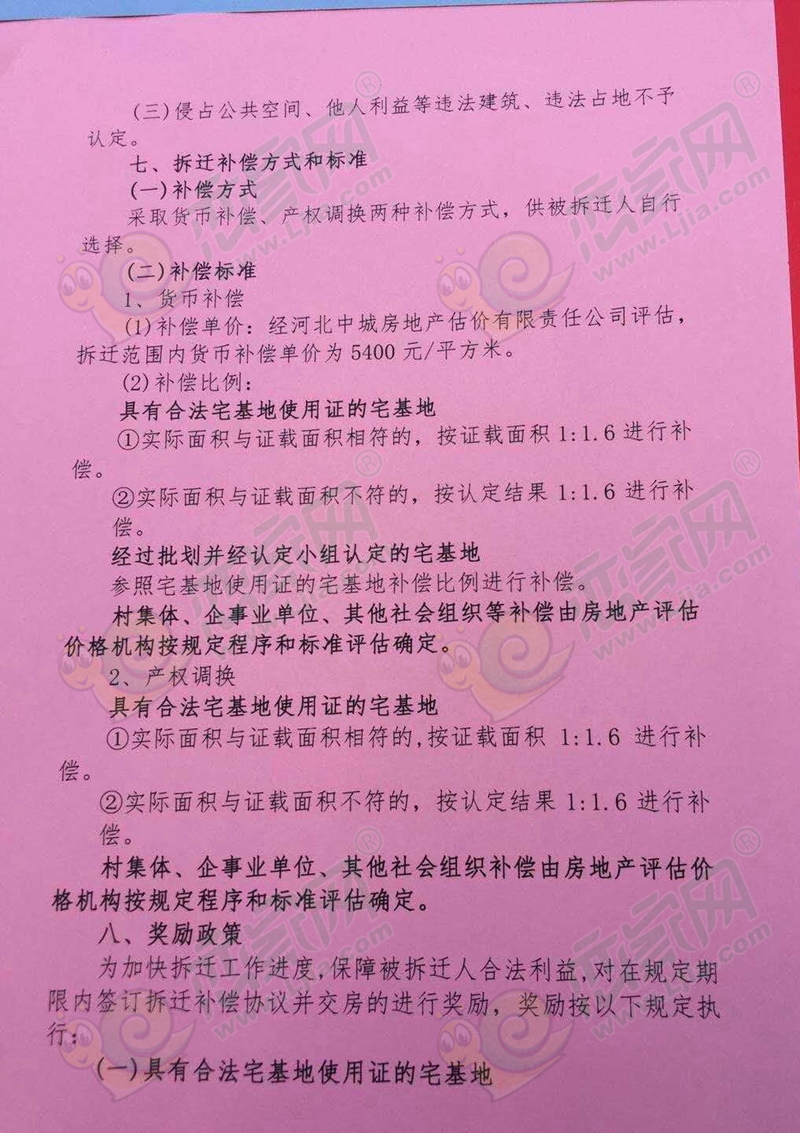 (三)侵占公共空间、他人利益等违法建筑、违法占地不予
认定。
七、拆迁补偿方式和标准
(一)补偿方式
采取货币补偿、产权调换两种补偿方式，供被拆迁人自行
选择。
(二)补偿标准
1、货币补偿
(1)补偿单价：经河北中城房地产估价有限责任公司评估，
拆迁范围内货币补偿单价为5400元/平方米。
(2)补偿比例：
具有合法宅基地使用证的宅基地
①实际面积与证载面积相符的，按证载面积1:1.6进行补
偿。
②实际面积与证载面积不符的，按认定结果1:1.6进行补
偿。
经过批划并经认定小组认定的宅基地
参照宅基地使用证的宅基地补偿比例进行补偿。
村集体、企事业单位、其他社会组织等补偿由房地产评估
价格机构按规定程序和标准评估确定。
2、产权调换
具有合法宅基地使用证的宅基地
①实际面积与证载面积相符的,按证载面积 1:1.6 进行补
偿。
②实际面积与证载面积不符的，按认定结果1:1.6进行补
偿。
村集体、企事业单位、其他社会组织补偿由房地产评估价
格机构按规定程序和标准评估确定。
八、奖励政策
为加快拆迁工作进度,保障被拆迁人合法利益,对在规定期
限内签订拆迁补偿协议并交房的进行奖励，奖励按以下规定执
行：
(一)具有合法宅基地使用证的宅基地
恋家网®
www.Ljia.com